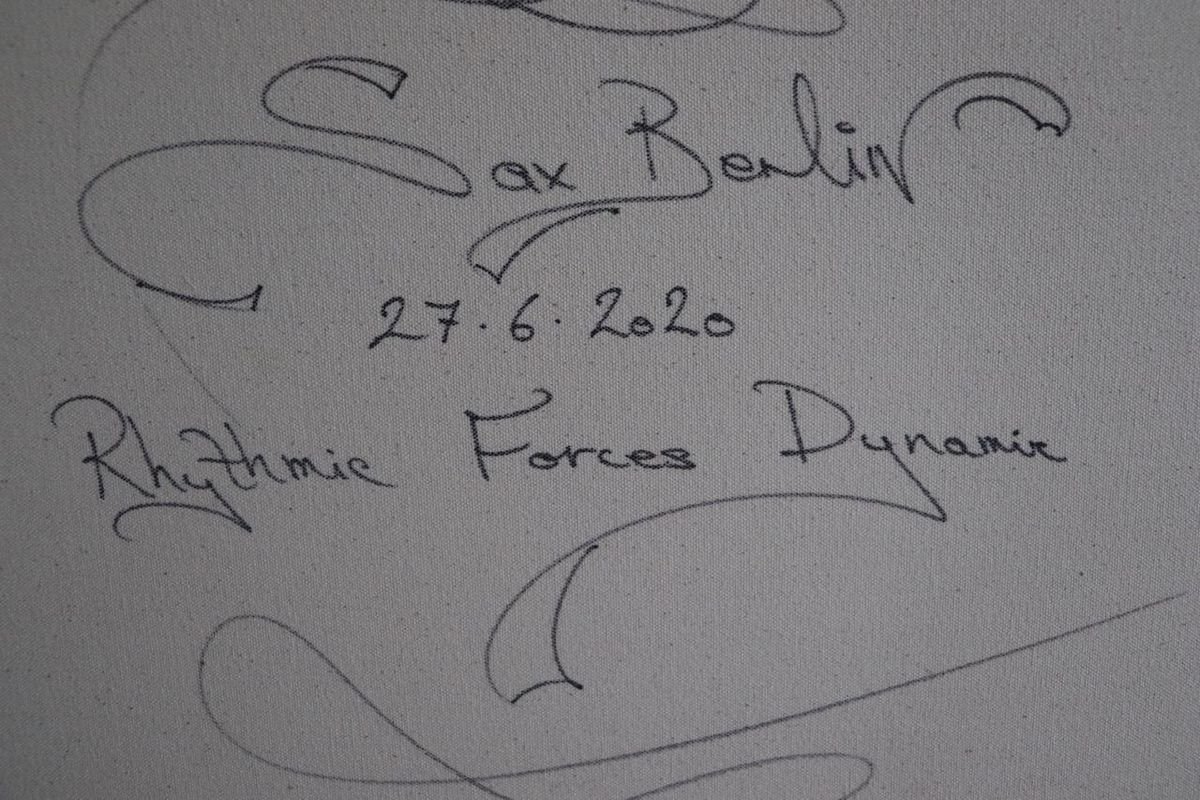 Sax Berlin
27.6.2020
Rhythmic Forces Dynamic